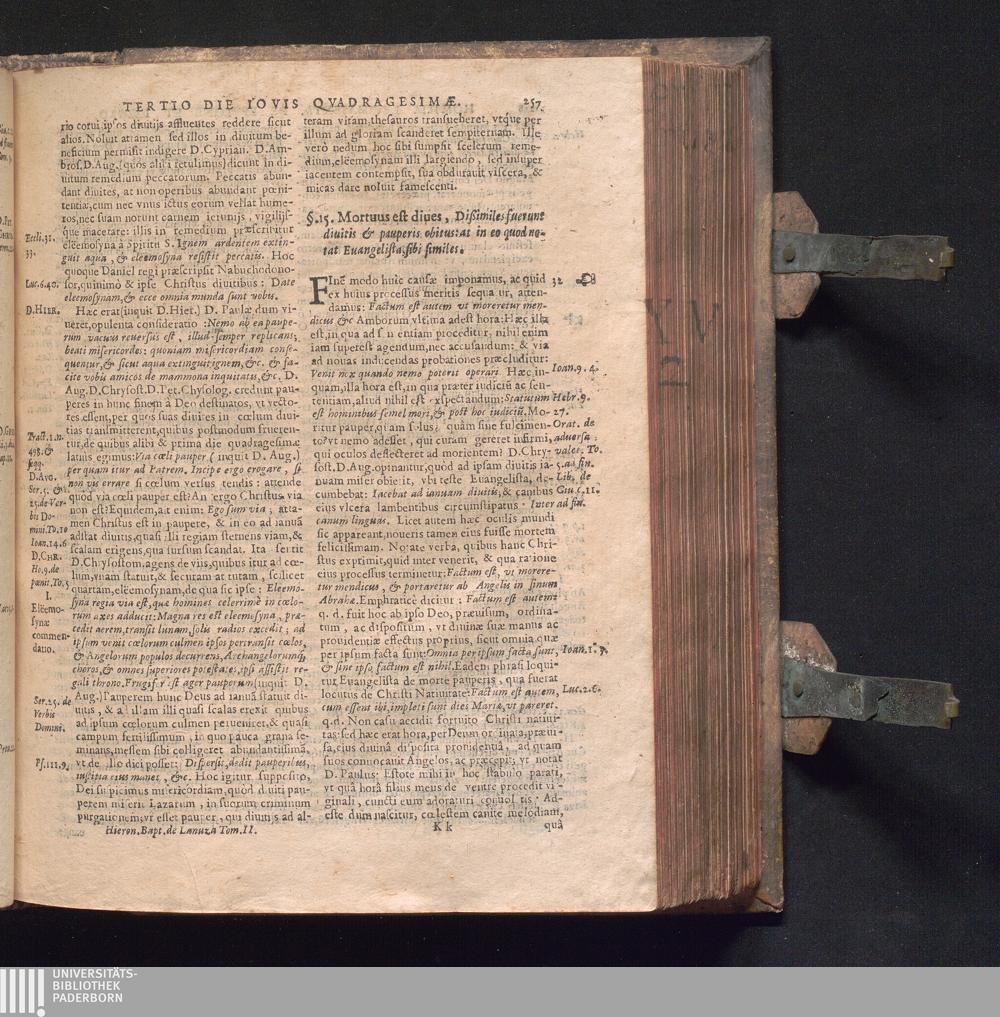 TERTIO DIE IOVIS QVADRAGESIMÆ. 257
alios. Noluit attamen sed illos in diuitum be-
neficium permisit indigere D. Cyprian. D. Am-
bros. D. Aug. (quos alibi retulimus) dicunt in di-
uitum remedium peccatorum. Peccatis abun-
dant diuites, at non operibus abundant pœni-
tentiæ, cum nec vnus ictus eorum vellat hume-
ros, nec suam norunt carnem ieiunijs, vigilijs-
que macerare: illis in remedium præscribitur
eleemosyna à Spiritu S. Ignem ardentem extin-
guit aqua, & eleemosyna resistit peccatis. Hoc
quoque Daniel regi præscripsit Nabuchodono-
sor, quinimò & ipse Christus diuitibus: Date
eleemosynam, & ecce omnia munda sunt vobis.
Hæc erat (inquit D. Hier.) D. Paulæ dum vi-
ueret, opulenta consideratio: Nemo ab ea paupe-
rum vacuus reuersus est, illud semper replicans;
beati misericordes: quoniam misericordiam conse-
quentur, & sicut aqua extinguit ignem, &c. & fa-
cite vobis amicos de mammona iniquitatis, &c. D.
Aug. D. Chrysost. D. Pet. Chysolog. credunt pau-
peres in hunc finem à Deo destinatos, vt vecto-
res essent, per quos suas diuites in cœlum diui-
tias transmitterent, quibus postmodum frueren-
tur, de quibus alibi & prima die quadragesimæ
latiùs egimus: Via cœli pauper (inquit D. Aug.)
per quam itur ad Patrem. Incipe ergo erogare, si
non vis errare si cœlum versus tendis: attende
quòd via cœli pauper est? An ergo Christus via
non est? Equidem, ait enim: Ego sum via; atta-
men Christus est in paupere, & in eo ad ianuã
adstat diuitis, quasi illi regiam sternens viam, &
scalam erigens, qua sursum scandat. Ita sentit
D. Chrysostom. agens de viis, quibus itur ad cœ-
lum, vnam statuit, & securam at tutam, scilicet
quartam, eleëmosynam, de qua sic ipse: Eleemo-
syna regia via est, quæ homines celerrimè in cœlo-
rum axes adducit: Magna res est eleemosyna, præ-
cedit aerem, transit lunam, solis radios excedit; ad
ipsum venit cœlorum culmen ipsos pertransit cœlos,
& Angelorum populos decurrens, Archangelorumq;
choros, & omnes superiores potestates, ipsi assistit re-
gali throno. Frugifer est ager pauperum (inquit D.
Aug.) Pauperem hunc Deus ad ianuã statuit di-
uitis, & ad illam illi quasi scalas erexit quibus
ad ipsum cœlorum culmen perueniret, & quasi
campum fertilissimum, in quo pauca grana se-
minans, messem sibi colligeret abundantissimã,
vt de illo dici posset: Dispersit, dedit pauperibus,
iustitia eius manet, &c. Hoc igitur supposito,
Dei suspicimus misericordiam, quòd diuiti pau-
perem miserit Lazarum, in suorum criminum
purgationem; vt esset pauper, qui diuitis ad al-
Hieron. Bapt. de Lanuza Tom. II.
Eccli. 3.
33.
Luc. 6. 40.
D. HIER.
Tract. 1. n.
498. &
seqq.
D. AVG.
Ser. 5. &
25. de Ver-
bis Do-
mini. To. 10
Ioan. 14. 6
D. CHR.
Ho. 9. de
pœnit. To. 5
I.
Eleëmo-
synæ
commen-
datio.
Ser. 25. de
Verbis
Domini.
Ps. 111. 9.
teram vitam, thesauros transueheret, vtque per
illum ad gloriam scanderet sempiternam. Ille
verò nedum hoc sibi sumpsit scelerum reme-
dium, eleëmosynam illi largiendo, sed insuper
iacentem contempsit, sua obdurauit viscera, &
micas dare noluit famescenti.
§. 15. Mortuus est diues, Dißimiles fuerunt
diuitis & pauperis obitus: at in eo quod no-
tat Euangelista, sibi similes.
FInẽ modo huic causæ imponamus, ac quid 32
ex huius processus meritis sequatur, atten-
damus: Factum est autem vt moreretur men-
dicus &c Amborum vltima adest hora: Hæc illa
est, in qua ad finem etiam proceditur, nihil enim
iam superest agendum, nec accusandum: & via
ad nouas indicendas probationes præcluditur:
Venit nox quando nemo poterit operari. Hæc in-
quam, illa hora est, in qua præter iudiciũ ac sen-
tentiam, aliud nihil est expectandum: Statutum
est hominibus semel mori, & post hoc iudiciũ. Mo-
ritur pauper, quàm solus! quàm sine fulcimen-
to? vt nemo adesset, qui curam gereret infirmi,
qui oculos deflecteret ad morientem? D. Chry-
sost. D. Aug. opinantur, quòd ad ipsam diuitis ia-
nuam miser obierit, vbi teste Euangelista, de-
cumbebat: Iacebat ad ianuam diuitis, & canibus
eius vlcera lambentibus circumstipatus.
canum linguas. Licet autem hæc oculis mundi
sic appareant, noueris tamen eius fuisse mortem
felicissimam. Notate verba, quibus hanc Chri-
stus exprimit, quid inter venerit, & qua ratione
eius processus terminetur: Factum est, vt morere-
tur mendicus, & portaretur ab Angelis in sinum
Abrahæ. Emphraticè dicitur: Factum est autem:
q. d. fuit hoc ab ipso Deo, præuisum, ordina-
tum, ac dispositum, vt diuinæ suæ manus ac
prouidentiæ effectus proprius, sicut omnia quæ
per ipsum facta sunt: Omnia per ipsum facta sunt,
& sine ipso factum est nihil. Eadem phrasi loqui-
tur Euangelista de morte pauperis, qua fuerat
locutus de Christi Natiuitate: Factum est autem,
cum essent ibi, impleti sunt dies Mariæ, vt pareret.
q. d. Non casu accidit fortuito Christi natiui-
tas: sed hæc erat hora, per Deum ordinata, præui-
sa, eius diuinâ disposita prouidentiâ, ad quam
suos conuocauit Angelos, ac præcepit; vt notat
D. Paulus: Estote mihi in hoc stabulo parati,
vt quâ horâ filius meus de ventre procedit vir-
ginali, cuncti eum adoraturi conuoletis: Ad-
este dum nascitur, cœlestem canite melodiam,
K k quâ
Ioan. 9. 4.
Hebr. 9.
27.
Orat. de
aduersa
vales. To.
5. ad fin.
Lib. de
Inter ad fin.
Ioan. 1. 3.
Luc. 2. 6.
UNIVERSITÄTS-
BIBLIOTHEK
PADERBORN